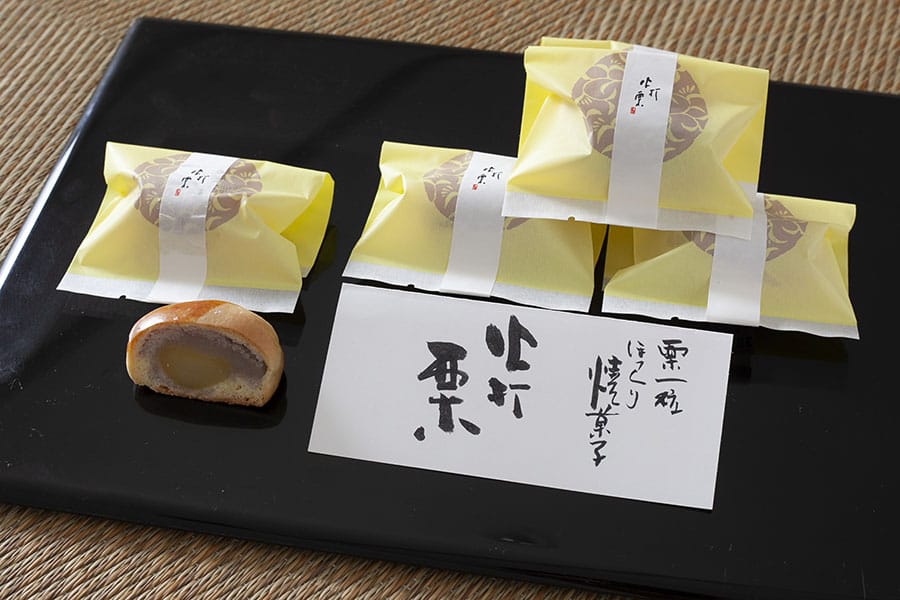 火打
栗
火打
栗
火打
栗
栗一粒
ほっくり
焼菓子
火打
栗